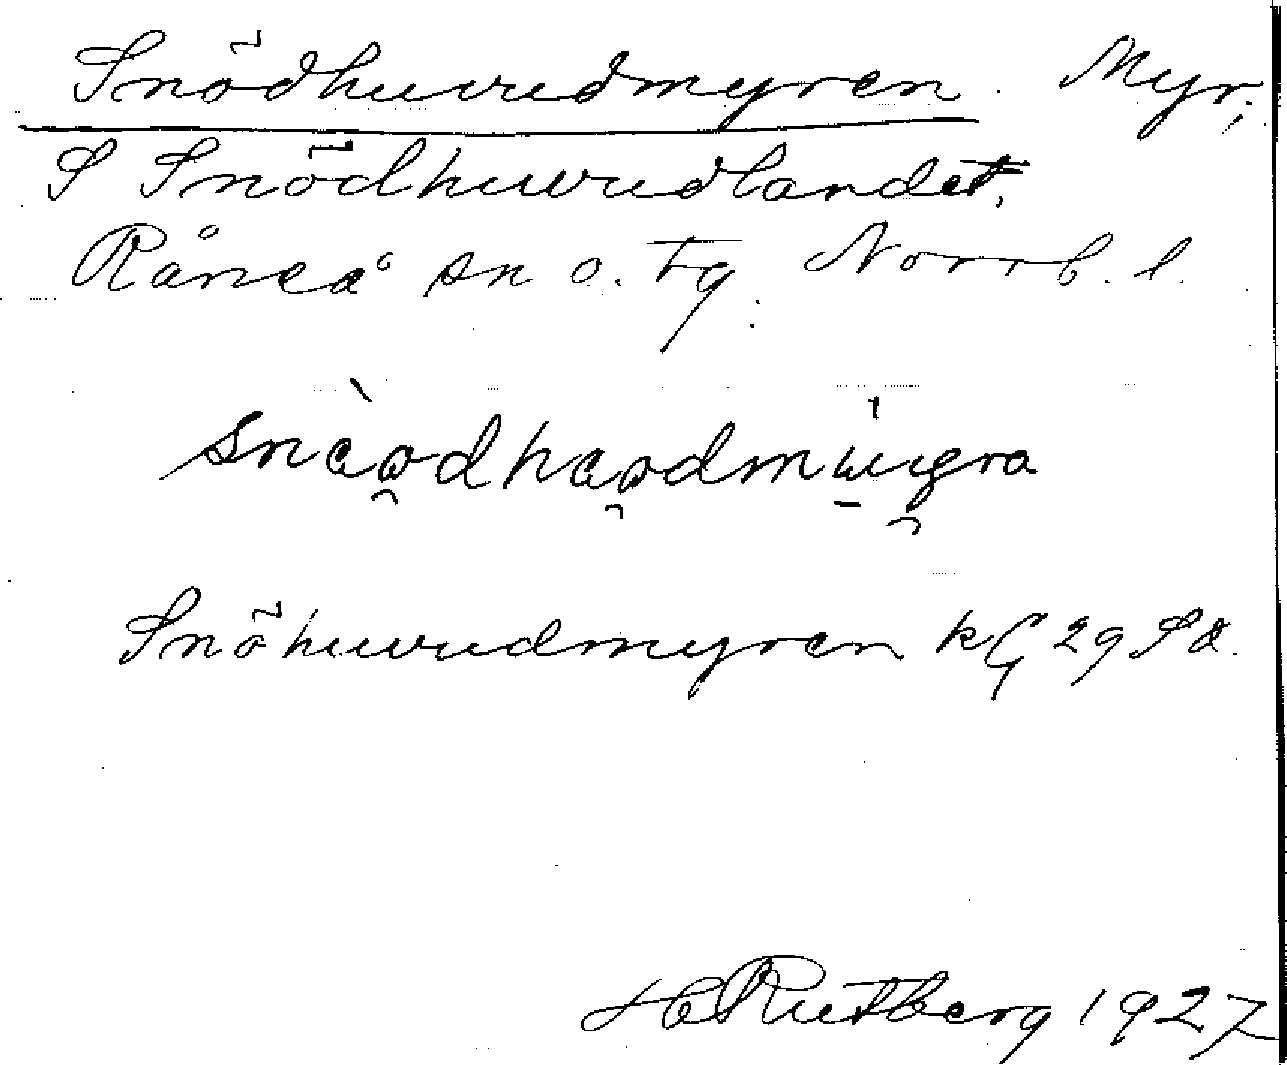 Snödhuvudmyren. Myr;
S Snödhuvudlandet,
Råneå sn o. tg. Norrb. l.
Snöhuvudmyren kG 29 SÖ.
H Rutberg 1927